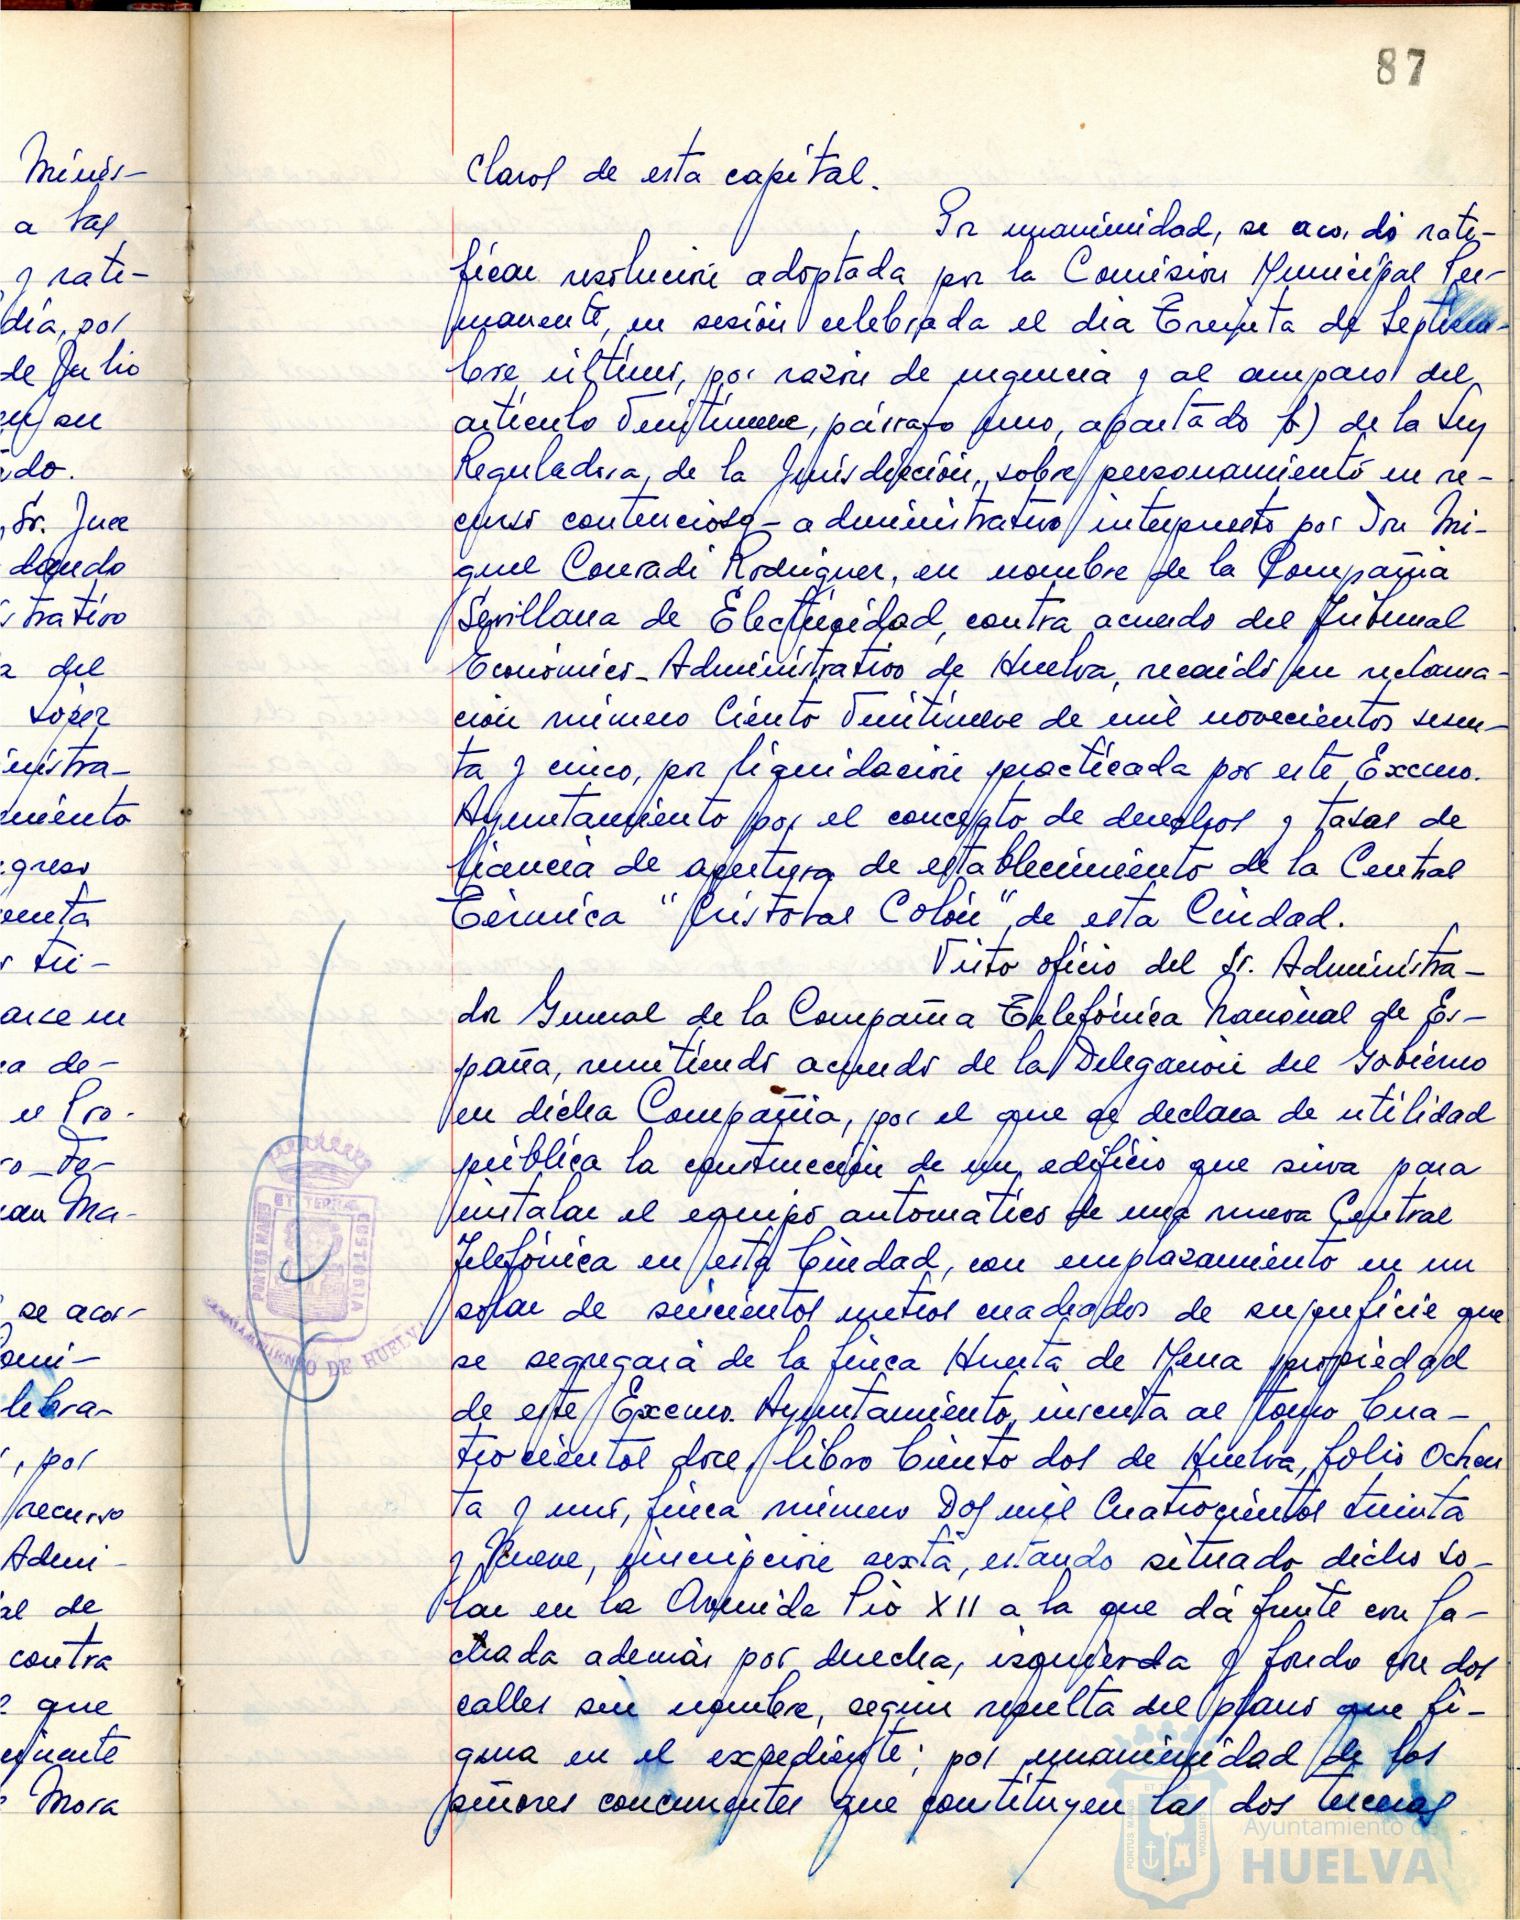 87
Minis-
a las
y rati-
día, por
de Julio
en su
do.
Sr. Juez
dando
strativo
a del
López
inistra-
miento
greso
enta
r tri-
arse en
ca de-
el Pro-
ro-Fer-
an Ma-
se acor-
omi-
lebra-
, por
recurso
Admi-
al de
contra
e que
Mora
claros de esta capital.
Por unanimidad, se acordó rati-
ficar resolución adoptada por la Comisión Municipal Per-
manente, en sesión celebrada el día Treinta de Septiem-
bre último, por razón de urgencia y al amparo del
artículo Veintinueve, párrafo uno, apartado b) de la Ley
Reguladora, de la Jurisdicción, sobre personamiento en re-
curso contencioso-administrativo interpuesto por Don Mi-
guel Conradi Rodríguez, en nombre de la Compañía
Sevillana de Electricidad, contra acuerdo del Tribunal
Económico-Administrativo de Huelva, recaído en reclama-
ción número Ciento Veintinueve de mil novecientos sesen-
ta y cinco, por liquidación practicada por este Excmo.
Ayuntamiento por el concepto de derechos y tasas de
licencia de apertura de establecimiento de la Central
Térmica "Cristobal Colón", de esta Ciudad.
Visto oficio del Sr. Administra-
dor General de la Compañía Telefónica Nacional de Es-
paña, remitiendo acuerdo de la Delegación del Gobierno
en dicha Compañía, por el que se declara de utilidad
pública la construcción de un edificio que sirva para
instalar el equipo automático de una nueva Central
Telefónica en esta Ciudad, con emplazamiento en un
solar de seiscientos metros cuadrados de superficie que
se segregará de la finca Huerta de Mena propiedad
de este Excmo. Ayuntamiento, inscrita al tomo Cua-
trocientos doce, libro Ciento dos de Huelva, folio Ochen
ta y uno, finca número Dos mil Cuatrocientos treinta
y Nueve, inscripción sexta, estando situado dicho so-
lar en la Avenida Pío XII a la que dá frente con fa-
chada además por derecha, izquierda y fondo con dos
calles sin nombre, según resulta del plano que fi-
gura en el expediente; por unanimidad de los
señores concurrentes que constituyen las dos terceras
PORTUS MARIS ET TERRAE CUSTODIA
AYUNTAMIENTO DE HUELVA
Ayuntamiento de
HUELVA